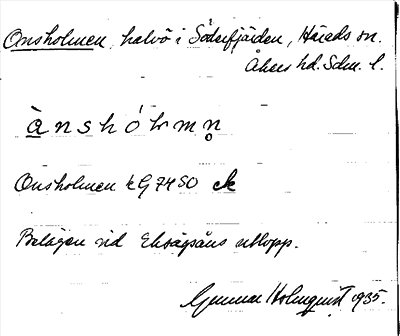 Onsholmen, halvö i Söderfjärden, Häreds sn.
Åkers hd. Sdm. l.
ànshólmn̥
Onsholmen kG 74 SO ek
Belägen vid Eksågsåns utlopp.
Gunnar Holmquist 1935.